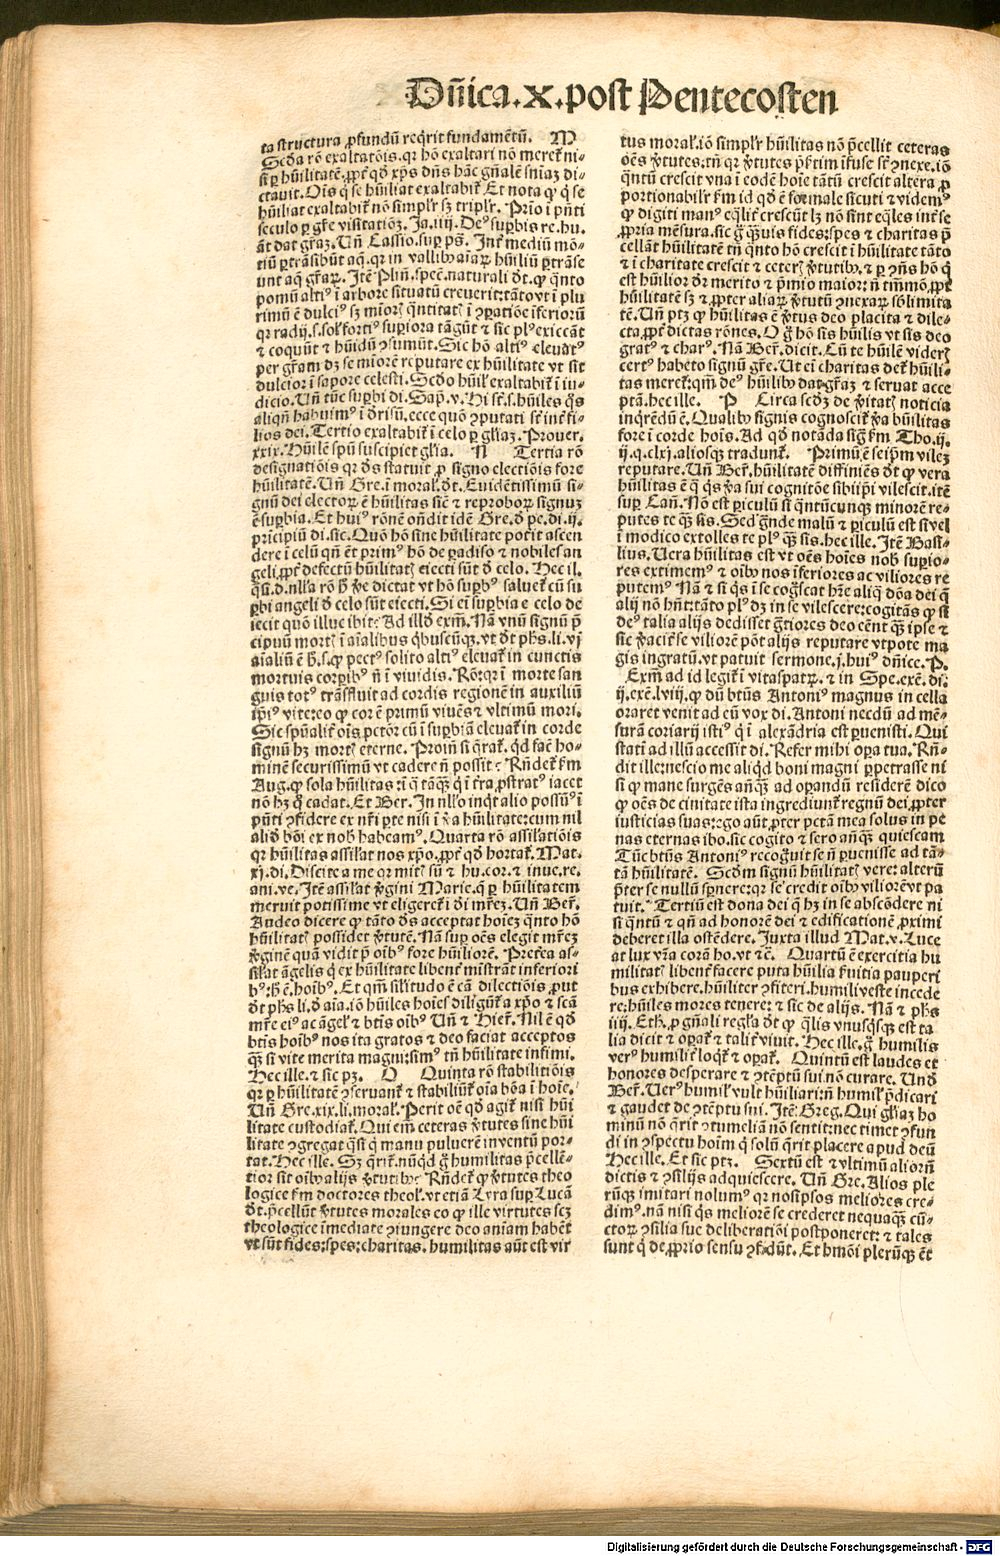 Dñica.X.post Pentecosten
ta structura ꝓfundũ reqͥrit fundamẽtũ. M
Scďa rõ exaltatõis.qꝛ hõ exaltari nõ meret̃ ni⸗
si ꝑ hũilitatẽ,ꝓpt̃ qďõ xp̃s dñs hãc gñalẽ sniaʒ di⸗
ctauit. Oĩs qͥ se hũiliat exaltabit̃. Et nota ꝙ qͥ se
hũiliat exaltabit̃ nõ simplr̃ sʒ triplr̃. Prĩo ĩ pñti
seculo ꝑ gr̃e visitatiõʒ. Ja.iiij. Deꝰ suꝑbis re.hu.
aũt dat gr̃aʒ. Uñ Cassio.suꝑ ps̃. Int̃ mediũ mõ⸗
tiũ ꝑtrãsibũt aq̃.qꝛ in vallibꝰ aĩaꝝ hũiliũ ꝑtrãse
unt aq̃ gr̃aꝝ. Itẽ Plĩñ.spec̃.naturali ďt.ꝙ qͣnto
pomũ altiꝰ ĩ arbore situatũ creuerit:tãto vt ĩ plu
rimũ ẽ dulciꝰ sʒ mĩorꝭ qͣntitatꝭ ĩ ꝯꝑatiõe ĩferiorũ
qꝛ radij.s.sol̃ fortiꝰ suꝑiora tãgũt ⁊ sic plꝰ exiccãt
⁊ coquũt ⁊ hũidũ ꝯsumũt. Sic hõ altiꝰ eleuatꝰ
per gr̃am dʒ se miorẽ reputare ex hũilitate vt sit
dulcior ĩ sapore celesti. Scďo hũil̃ exaltabit̃ ĩ iu⸗
dicio. Uñ tũc suꝑbi di. Sap̃.v. Hi sr̃.s.hũiles qͦs
aliqñ habuimꝰ ĩ ďrisũ.ecce quõ ꝯputati sr̃ int̃ fi⸗
lios dei. Tertio exaltabit̃ ĩ celo ꝑ gl̃iaʒ. Prouer.
xxix. Hũilẽ spũ suscipiet gl̃ia. N Tertia rõ
designatiõis qꝛ ďs statuit ꝓ signo electiõis fore
hũilitatẽ. Uñ Gre.ĩ moral̃.ďt. Euidẽtissimũ si⸗
gnũ dei electoꝝ ẽ hũilitas sic̃ ⁊ reproboꝝ signuʒ
ẽ suꝑbia. Et huiꝰ rõnẽ oñdit idẽ Gre.ď pe.di.ij.
pricipiũ di.sic. Quõ hõ sine hũilitate potit̃ ascen
dere ĩ celũ qñ ẽt primꝰ hõ de ꝑadiso ⁊ nobiles an
geli ꝓpt̃ defectũ hũilitatꝭ eiecti sũt ď celo. Hec il.
qũ.d.nlla rõ h̃ fre dictat vt hõ suꝑbꝰ saluet̃ cũ su
ꝑbi angeli ď celo sũt eiecti. Si ei suꝑbia e celo de
iecit quõ illuc ibit: Ad illď exm̃. Nã vnũ signũ p̃
cipuũ mortꝭ ĩ aĩalibus qͥbuscũqꝫ.vt ďt ph̃s.li.vj
aĩaliũ ẽ h̃.s.ꝙ pectꝰ solito altiꝰ eleuat̃ in cunctis
mortuis corꝑibꝰ ñ ĩ viuidis. Rõ:qꝛ ĩ morte san
guis totꝰ trãsfluit ad cordis regionẽ in auxiliũ
ip̃iꝰ vite:eo ꝙ cor ẽ primũ viuẽs ⁊ vltimũ mori.
Sic spũalit̃ oĩs pctõr cũ ĩ suꝑbiã eleuat̃ in corde
signũ hʒ mortꝭ eterne. Proim̃ si q̃rat̃. qͥd fac̃ ho⸗
minẽ securissimũ vt cadere ñ possit: Rñdet̃ ẽm
Aug.ꝙ sola hũilitas:ĩ qͣ tãqͣʒ qͥ ĩ tr̃a ꝓstratꝰ iacet
nõ hʒ qͦ cadat. Et Ber. In nll̃o inqͥt alio possũꝰ ĩ
pñti ꝯfidere ex nr̃i ꝑte nisi ĩ v̾a hũilitate:cum nil
aliď bõi ex nob̃ habeamꝰ. Quarta rõ assil̃atiõis
qꝛ hũilitas assil̃at nos xp̃o.ꝓpt̃ qď hortat̃. Mat.
xj.di. Discite a me qꝛ mitꝭ sũ ⁊ hu.cor.⁊ inue.re.
ani.ve. Itẽ assil̃at v̾gini Marie.qͣ ꝑ hũilitatem
meruit potissime vt eligeret̃ ĩ di mr̃eʒ. Uñ Ber̃.
Audeo dicere ꝙ tãto ďs acceptat hoiẽʒ qͣnto hõ
hũilitatꝭ possidet v̾tutẽ. Nã suꝑ oẽs elegit mr̃eʒ
v̾ginẽ quã vidit p̃ oĩbꝰ fore hũiliorẽ. Preťea as⸗
sil̃at ãgelis qͥ ex hũilitate libent̃ mĩstrãt inferiori
bꝰ:h̃ ẽ.hoĩbꝰ. Et qm̃ sil̃itudo ẽ cã dilectiõis,put
ďt ph̃s li.ď aĩa.iõ hũiles hoĩes diligũt̃ a xp̃o ⁊ scã
mr̃e eiꝰ ac ãgel̃ ⁊ btĩs oĩbꝰ Uñ ⁊ Hier̃. Nil ẽ qď
btĩs hoĩbꝰ nos ita gratos ⁊ deo faciat acceptos
qͣʒ si vite merita magni:simꝰ tñ hũilitate infimi.
Hec ille.⁊ sic pʒ. O Quinta rõ stabilitiõis
qꝛ ꝑ hũilitatẽ ꝯseruant̃ ⁊ stabiliũt̃ oĩa bõa ĩ hoĩe.
Uñ Gre.xix.li.moral̃. Perit oẽ qď agit̃ nisi hũi
litate custodiat̃. Qui eim̃ ceteras v̾tutes sine hũi
litate ꝯgregat qͣsi qͥ manu puluerẽ inuẽtũ por⸗
tat. Hec ille. Sʒ q̃rit̃.nũqͥd g̃ humilitas p̃cellẽ⸗
tior sit oĩbꝰ alijs v̾tutibꝰ: Rñdet̃ ꝙ v̾tutes theo
logice ẽm doctores theol̃.vt etiã Lyra suꝑ Lucã
ďt.p̃cellũt v̾tutes morales eo ꝙ ille virtutes scʒ
theologice ĩmediate ꝯiungere deo aniam habẽt
vt sũt fides:spes:charitas. humilitas aũt est vir
tus moral̃.iõ simplr̃ hũilitas nõ p̃cellit ceteras
oẽs v̾tutes:tñ qꝛ v̾tutes p̃ťim ĩfuse sr̃ ꝯnexe.iõ
qͣntũ crescit vna ĩ eodẽ hoĩe tãtũ crescit altera ꝓ
portionabilr̃ ẽm id qď ẽ formale sicuti ⁊ videmꝰ
ꝙ digiti manꝰ eq̃lit̃ crescũt lʒ nõ sint eq̃les int̃ se
ꝓpria mẽsura.sic g̃ qͣʒuis fides:spes ⁊ charitas p̃
cellãt hũilitatẽ tñ qͣnto hõ crescit ĩ hũilitate tãto
⁊ ĩ charitate crescit ⁊ ceterꝭ v̾tutibꝰ.⁊ ꝑ ꝯñs hõ qͥ
est hũilior ďr merito ⁊ p̃mio maior:ñ tm̃mõ,ꝓpť
hũilitatẽ sʒ ⁊ ꝓpter aliaꝝ v̾tutũ ꝯnexaꝝ sb̃limita
tẽ. Uñ ptʒ ꝙ hũilitas ẽ v̾tus deo placita ⁊ dile⸗
cta,ꝓpt̃ dictas rõnes. O g̃ hõ sis hũilis vt sis deo
gratꝰ ⁊ charꝰ. Nã Ber̃.dicit. Cũ te hũilẽ viderꝭ
certꝰ habeto signũ gr̃e. Ut ei charitas det̃ hũili⸗
tas meret̃:qm̃ deꝰ hũilibꝰ dat gr̃aʒ ⁊ seruat acce
ptã.hec ille. P Circa scďʒ de v̾itatꝭ noticia
inqͥrẽdũ ẽ. Qualibꝰ signis cognoscit̃ v̾a hũilitas
fore ĩ corde hoĩs. Ad qď notãda sig̃ ẽm Tho.ij.
ij.q.clxj.aliosqꝫ tradunt̃. Primũ ẽ seip̃m vileʒ
reputare. Uñ Ber̃.hũilitatẽ diffiniẽs ďt ꝙ vera
hũilitas ẽ qͣ qͥs v̾a sui cognitõe sibiip̃i vilescit.itẽ
suꝑ Can̾. Nõ est ꝑiculũ si qͣntũcunqꝫ minorẽ re⸗
putes te qͣʒ sis. Sed g̃nde malũ ⁊ ꝑiculũ est si vel
ĩ modico extolles te plꝰ qͣʒ sis.hec ille. Itẽ Basi⸗
lius. Uera hũilitas est vt oẽs hoĩes nob̃ suꝑio⸗
res extimemꝰ ⁊ oĩbꝰ nos ĩferiores ac viliores re
putemꝰ Nã ⁊ si qͥs ĩ se cog̃scat hr̃e aliqͣ dõa dei qͥ
alij nõ hñt:tãto plꝰ dʒ in se vilescere:cogitãs ꝙ si
deꝰ talia alijs dedisset g̃tiores deo eẽnt qͣʒ ipse ⁊
sic v̾aciẽ se viliorẽ põt alijs reputare vtpote ma
gis ingratũ.vt patuit sermone.j.huiꝰ dñice. P.
Exm̃ ad id legit̃ ĩ vitaspatꝝ.⁊ in Spe.exẽ.di.
ij.exẽ.lviij.ꝙ dũ btũs Antoniꝰ magnus in cella
oraret venit ad eũ vox di. Antoni necdũ ad mẽ⸗
surã coriarij istiꝰ qͥ ĩ alexãdria est ꝑuenisti. Qui
statĩ ad illũ accessit di. Refer mihi oꝑa tua. Rñ⸗
dit ille:nescio me aliqͥd boni magni ꝑpetrasse ni
si ꝙ mane surgẽs anñqͣʒ ad oꝑandũ residerẽ dico
ꝙ oẽs de ciuitate ista ingrediunt̃ regnũ dei ꝓpter
iusticias suas:ego aũt ꝓpter pctã mea solus in pe
nas eternas ibo.sic cogito ⁊ sero añqͣʒ quiescam
Tũc btũs Antoniꝰ recog̃uit se ñ ꝑuenisse ad tã⸗
tã hũilitatẽ. Scďm signũ hũilitatꝭ vere: alterũ
p̃ter se nullũ sꝑnere:qꝛ se credit oĩbꝰ viliorẽ vt pa
tuit. Tertiũ est dona dei qͥ hʒ in se abscõdere ni
si qͣntũ ⁊ qñ ad honorẽ dei ⁊ edificationẽ ꝓximi
deberet illa ostẽdere. Juxta illud Mat.v. Luce
at lux vr̃a corã ho.vt ⁊c̃. Quartũ ẽ exercitia hu
militatꝭ libent̃ facere puta hũilia s̃uitia pauperi
bus exhibere.hũiliter ꝯfiteri.humili veste incede
re:hũiles mores tenere:⁊ sic de alijs. Nã ⁊ ph̃s
iiij. Eth.ꝓ gñali regl̃a ďt ꝙ qͣlis vnusqͥsqꝫ est ta
lia dicit ⁊ oꝑat̃ ⁊ talit̃ viuit. Hec ille.g̃ humilis
verꝰ humilit̃ loqͥt̃ ⁊ oꝑat̃. Quintũ est laudes et
honores desperare ⁊ ꝯtẽptũ sui nõ curare. Unď
Ber̃. Uerꝰ humil̃ vult hũiliari:ñ humil̃ p̃dicari
⁊ gaudet de ꝯtẽptu sui. Itẽ: Greg. Qui gl̃iaʒ ho
minũ nõ q̃rit ꝯtumeliã nõ sentit:nec timet ꝯfun
di in ꝯspectu hoĩm qͥ solũ q̃rit placere apud deũ
Hec ille. Et sic ptʒ. Sextũ est ⁊ vltimũ aliorũ
dictis ⁊ ꝯsilijs adquiescere. Uñ Gre. Alios ple
rũqꝫ imitari nolumꝰ qꝛ nosip̃sos meliores cre⸗
dimꝰ.nã nisi qͥs meliorẽ se crederet nequaqͣʒ cũ⸗
ctoꝝ ꝯsilia sue deliberatiõi postponeret:⁊ tales
sunt qͥ de ꝓprio sensu ꝯfidũt. Et hmõi plerũqꝫ ẽt
Digitalisierung gefördert durch die Deutsche Forschungsgemeinschaft - DFG